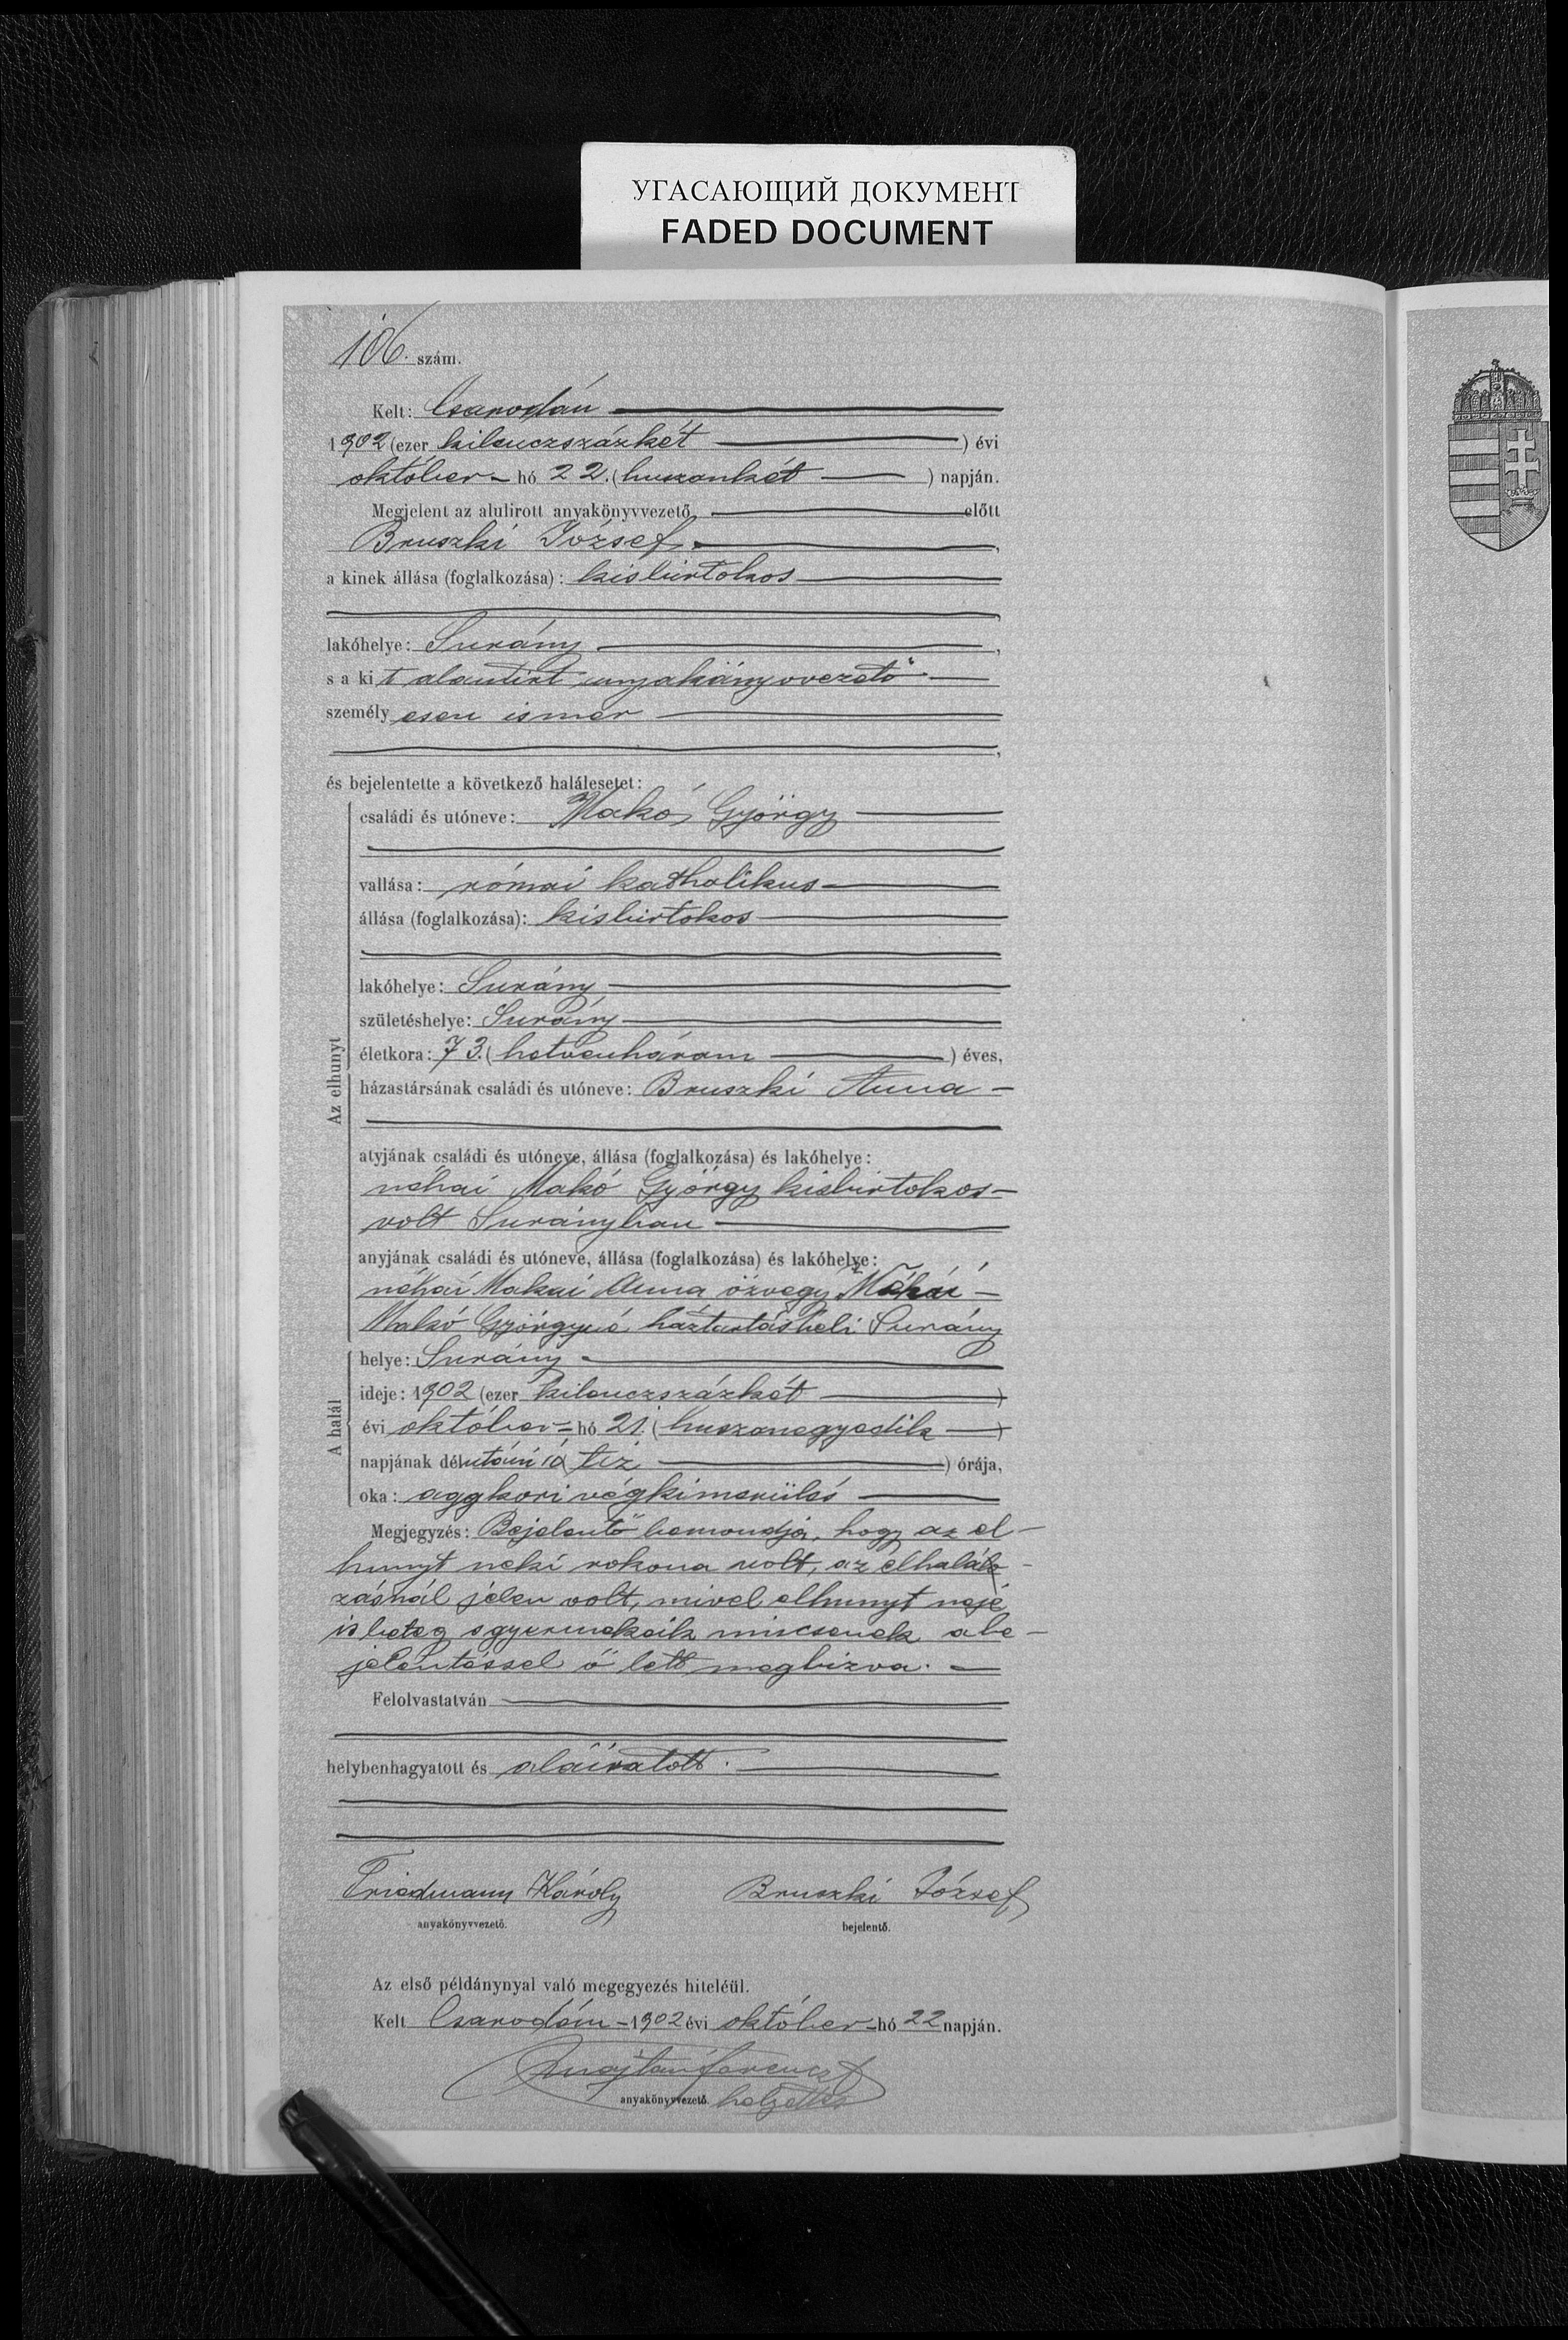 УГАСАЮЩИЙ ДОКУМЕНТ
FADED DOCUMENT
106. szám.
Kelt: Csarodán
1902 (ezer kilenczszázkét ) évi
október - hó 22. (huszonkét ) napján.
Megjelent az alulirott anyakönyvvezető előtt
Bruszki József,
a kinek állása (foglalkozása): kisbirtokos
lakóhelye: Surány,
s a kit alantirt anyakönyvvezető
személyesen ismer,
és bejelentette a következő halálesetet:
Az elhunyt
családi és utóneve: Makó György
vallása: római katholikus
állása (foglalkozása): kisbirtokos
lakóhelye: Surány
születéshelye: Surány
életkora: 73. (hetvenhárom ) éves,
házastársának családi és utóneve: Bruszki Anna -
atyjának családi és utóneve, állása (foglalkozása) és lakóhelye:
néhai Makó György kisbirtokos -
volt Surányban
anyjának családi és utóneve, állása (foglalkozása) és lakóhelye:
néhai Makai Anna özvegy Néhai -
Makó Györgyné háztartásbeli Surány
A halál
helye: Surány
ideje: 1902 (ezer kilenczszázkét )
évi október = hó 21. (huszonegyedik )
napjának délutáni 10 (tiz ) órája,
oka: aggkori végkimerülés
Megjegyzés: Bejelentő bemondja, hogy az el-
hunyt neki rokona volt, az elhalálo-
zásnál jelen volt, mivel elhunyt neje
is beteg s gyermekeik nincsenek a be-
jelentéssel ő lett megbizva.
Felolvastatván
helybenhagyatott és aláiratott.
Friedmann Károly Bruszki József
anyakönyvvezető. bejelentő.
Az első példánynyal való megegyezés hiteléül.
Kelt Csarodán - 1902 évi október - hó 22 napján.
ferencz
anyakönyvvezető. helyettes